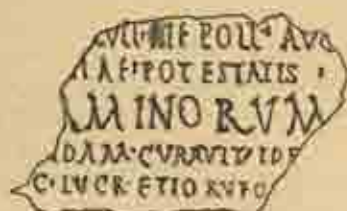 POLL AVG
POTESTATIS
AMINORVM
DAM·CVRAVIT·IDE
C·LVCRETIO RVFO